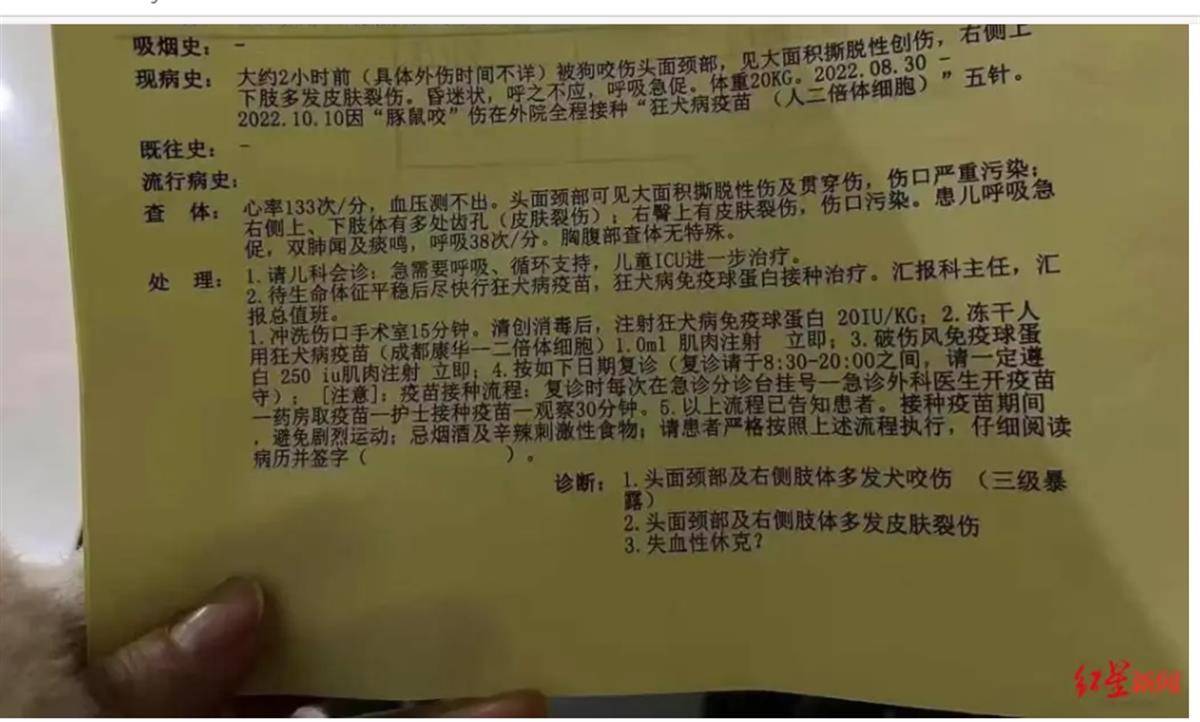 吸烟史： -
现病史： 大约2小时前（具体外伤时间不详）被狗咬伤头面颈部，见大面积撕脱性创伤，右侧上
下肢多发皮肤裂伤。昏迷状，呼之不应，呼吸急促。体重20KG。2022.08.30 -
2022.10.10因“豚鼠咬”伤在外院全程接种“狂犬病疫苗 （人二倍体细胞）”五针。
既往史： -
流行病史：
查 体： 心率133次/分，血压测不出。头面颈部可见大面积撕脱性伤及贯穿伤，伤口严重污染；
右侧上、下肢体有多处齿孔（皮肤裂伤）；右臀上有皮肤裂伤，伤口污染。患儿呼吸急
促，双肺闻及痰鸣，呼吸38次/分。胸腹部查体无特殊。
处 理： 1.请儿科会诊：急需要呼吸、循环支持，儿童ICU进一步治疗。
2.待生命体征平稳后尽快行狂犬病疫苗，狂犬病免疫球蛋白接种治疗。汇报科主任，汇
报总值班。
1.冲洗伤口手术室15分钟。清创消毒后，注射狂犬病免疫球蛋白 20IU/KG；2.冻干人
用狂犬病疫苗（成都康华—二倍体细胞）1.0ml 肌肉注射 立即；3.破伤风免疫球蛋
白 250 iu肌肉注射 立即；4.按如下日期复诊（复诊请于8:30-20:00之间，请一定遵
守）；[注意]：疫苗接种流程：复诊时每次在急诊分诊台挂号—急诊外科医生开疫苗
—药房取疫苗—护士接种疫苗—观察30分钟。5.以上流程已告知患者。接种疫苗期间
，避免剧烈运动；忌烟酒及辛辣刺激性食物；请患者严格按照上述流程执行，仔细阅读
病历并签字（ ）。
诊断： 1.头面颈部及右侧肢体多发犬咬伤 （三级暴
露）
2.头面颈部及右侧肢体多发皮肤裂伤
3.失血性休克？
红星新闻